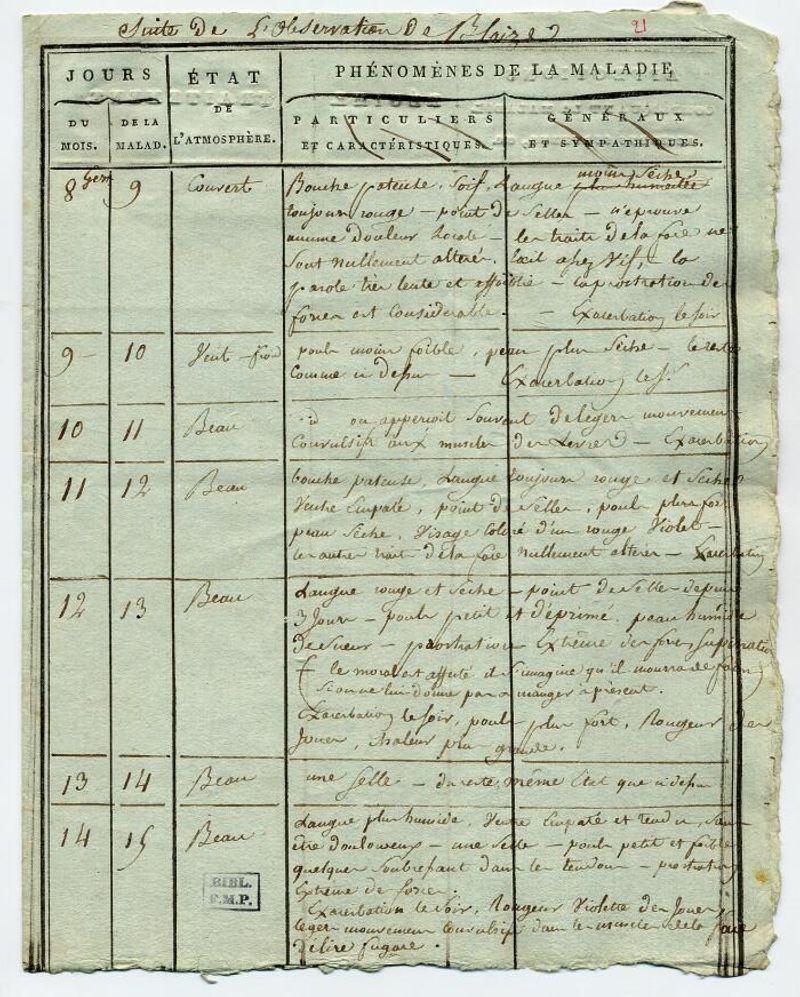 Suite de L'Observation de Blaize
21
JOURS
ÉTAT
PHÉNOMÈNES DE LA MALADIE
DU
DE LA
DE
PARTICULIERS
GÉNÉRAUX
MOIS.
MALAD.
L'ATMOSPHÈRE.
ET CARACTÉRISTIQUES.
ET SYMPATHIQUES.
8 Germ 9 Couvert Bouche pateuse, Soif, Langue moins Seche
toujours rouge – point de Selles – n'éprouve
aucune douleur Locale – les traits de la face ne
Sont nullement altérés. L'œil assez Vif, – la
parole très lente et affoiblie – la prostration des
forces est Considérable. – Exacerbation le soir
9 10 Vent – froid pouls moins foible, peau plus Sèche – le reste
Comme ci dessus — Exacerbation le s.r
10 11 Beau id on apperçoit Souvent de légers mouvemens
Convulsifs aux muscles des Levres – Exacerbation
11 12 Beau bouche pateuse, Langue toujours rouge et Seche
Ventre Empaté, point de Selles, pouls plus fort
peau Sèche, Visage Coloré d'un rouge Violet –
les autres traits de la face Nullement altérés – Exacerbation
12 13 Beau Langue rouge et Sèche – point de Selle depuis
3 Jours – pouls petit et déprimé, peau humide
de Sueur – prostration Extrême des forces,
( le moral est affecté il S'imagine qu'il mourra de faim )
Si on ne lui donne pas a manger a présent.
Exacerbation le Soir, pouls plus fort, Rougeur des
Joues, Chaleur plus grande.
13 14 Beau une Selle – du reste même Etat que ci dessus
14 15 Beau Langue plus humide, Ventre Empaté et tendu, Sans
être douloureux – une Selle – pouls petit et foible
quelques Soubresaut dans les tendons – prostration
Extrême de forces.
Exacerbation le Soir, Rougeur Violette des Joues,
legers mouvemens Convulsifs dans les muscles de la face
délire fugace.
BIBL.
F.M.P.